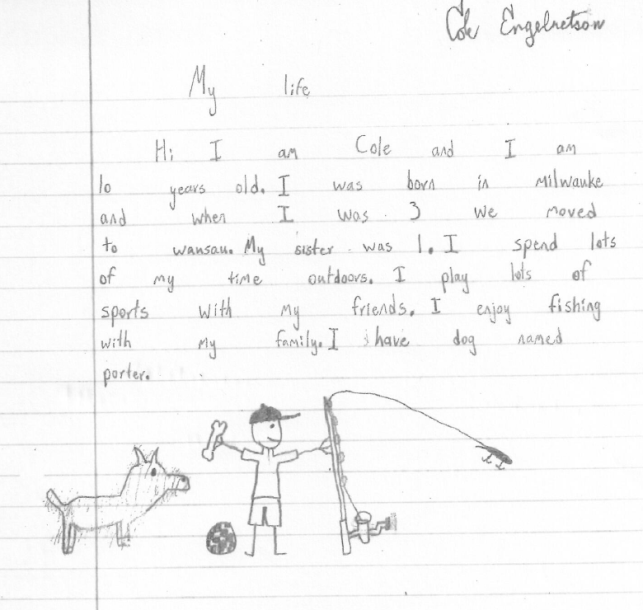 Cole Engelretson
My life
Hi I am Cole and I am
10 years old. I was born in Milwauke
and when I was 3 we moved
to wansau. My sister was 1. I spend lots
of my time outdoors. I play lots of
sports with my friends. I enjoy fishing
with my family. I have dog named
porter.